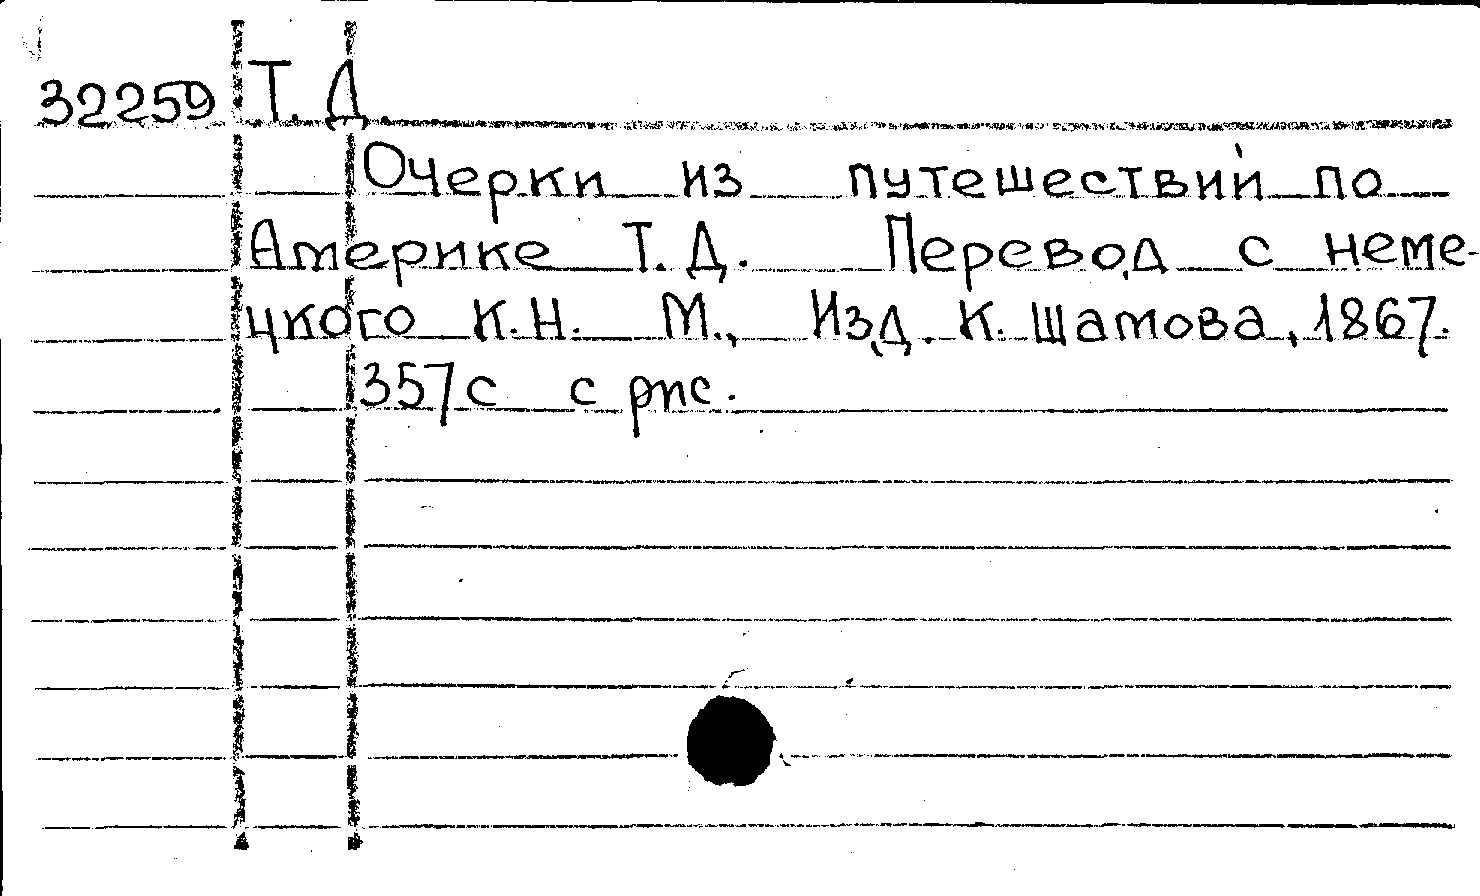 32259 Т. Д.
Очерки из путешествий по
Америке Т. Д. Перевод с неме-
цкого К. Н. М., Изд. К. Шамова, 1867.
357 с с рис.